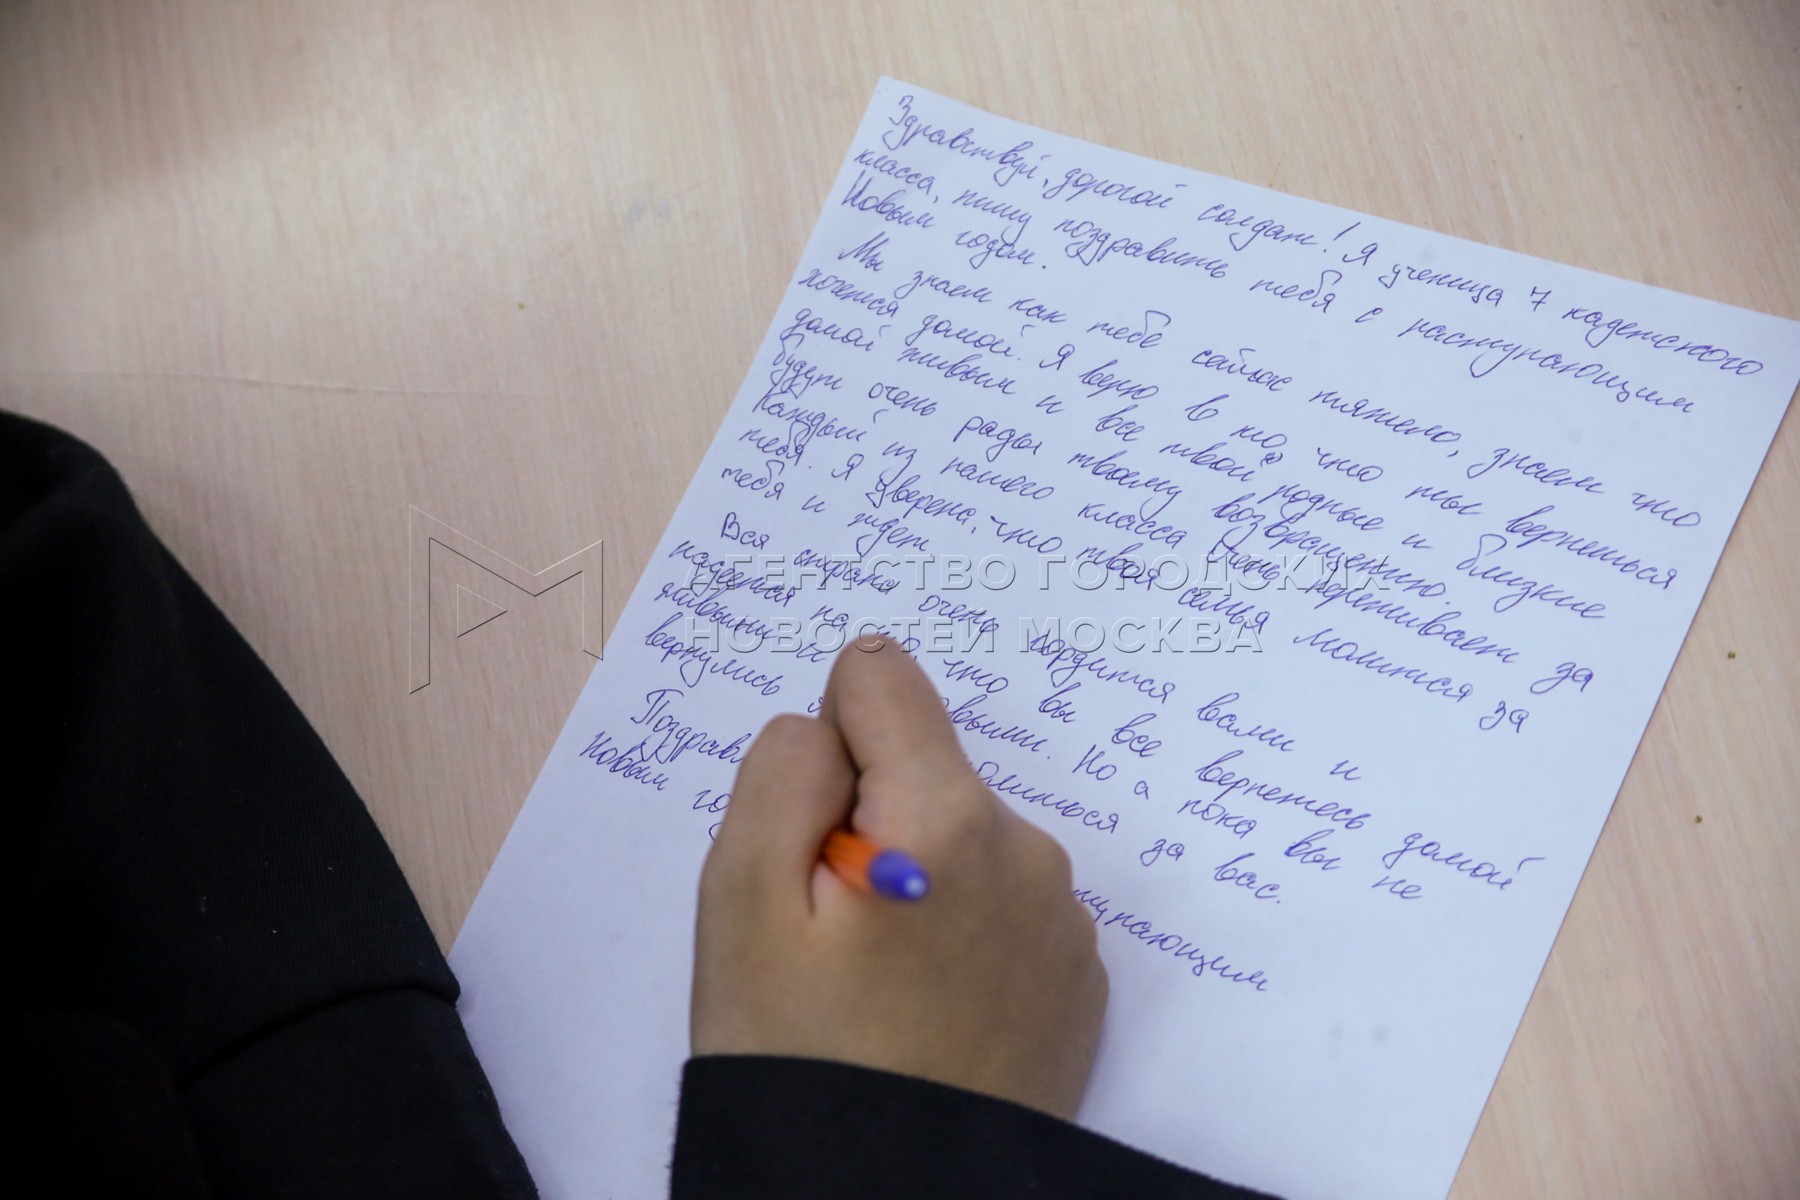 Здравствуй, дорогой солдат! Я ученица 7 кадетского
класса, пишу поздравить тебя с наступающим
Новым годом.
Мы знаем как тебе сейчас тяжело, знаем что
хочется домой. Я верю в то, что ты вернешься
домой живым и все твои родные и близкие
будут очень рады твоему возвращению.
Каждый из нашего класса очень переживает за
тебя. Я уверена, что твоя семья молится за
тебя и ждет
Вся страна очень гордится вами и
надеется на то, что вы все вернетесь домой
живыми и Но а пока вы не
вернулись за вас.
Поздрав
Новым го
АГЕНТСТВО ГОРОДСКИХ
НОВОСТЕЙ МОСКВА